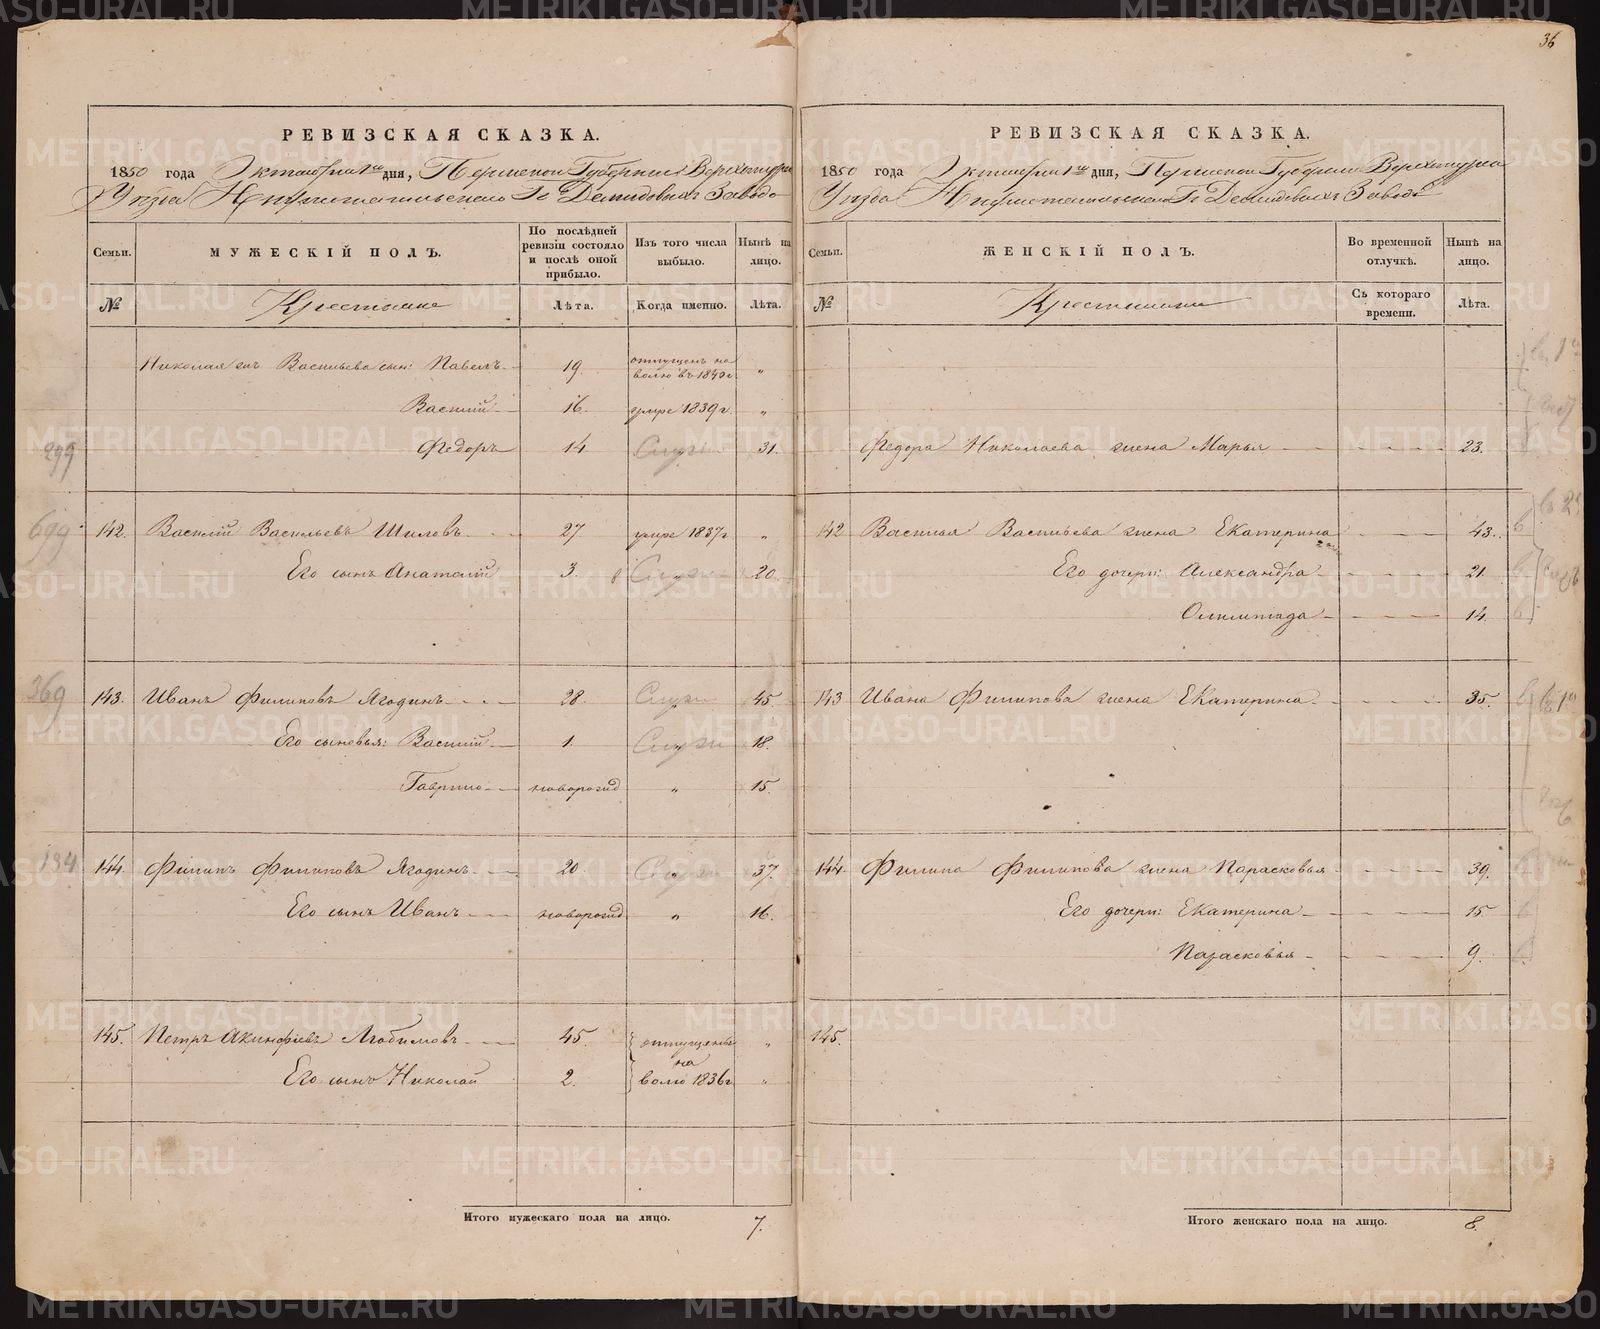 36
РЕВИЗСКАЯ СКАЗКА.
1850 года Октября 1го дня, Пермской Губернии Верхотурскаго
Уѣзда Нижнетагильскаго Гг Демидовыхъ Завода
Семьи.
МУЖЕСКІЙ ПОЛЪ.
По послѣдней ревизіи состояло и послѣ оной прибыло.
Изъ того числа выбыло.
Нынѣ на лицо.
№
Крестьяне
Лѣта.
Когда именно.
Лѣта.
Николая Васильева сын: Павелъ 19 отпущенъ на волю въ 1840г. „
Василій 16. умре 1839г. „
299 Федоръ 14 31.
699 142. Василій Васильевъ Шиловъ 27 умре 1837г „
Его сынъ Анатолій 3. „ 20.
369 143. Иванъ Филиповъ Ягодинъ 28. 45.
Его сыновья: Василій 1. „ 18.
Гаврило новорожд „ 15.
194 144. Филипъ Филиповъ Ягодинъ 20. „ 37.
Его сынъ Иванъ новорожд „ 16.
145. Петръ Акинфіевъ Любимовъ 45. отпущены „
на
Его сынъ Николай 2. волю 1836г „
Итого мужескаго пола на лицо. 7.
РЕВИЗСКАЯ СКАЗКА.
1850 года Октября 1го дня, Пермской Губернии Верхотурска
Уѣзда Нижнетагильскаго Гг Демидовыхъ Заводъ
Семьи.
ЖЕНСКІЙ ПОЛЪ.
Во временной отлучкѣ.
Нынѣ на лицо.
№
Крестьянки
Съ котораго времени.
Лѣта.
Федора Николаева жена Марья 23.
142 Василья Васильева жена Екатерина 43.
Его дочери: Александра 21.
Олимпіада 14.
143 Ивана Филипова жена Екатерина 35.
144. Филипа Филипова жена Парасковья 39.
Его дочери: Екатерина 15
Парасковья 9.
145.
Итого женскаго пола на лицо. 8.
METRIKI.GASO-URAL.RU